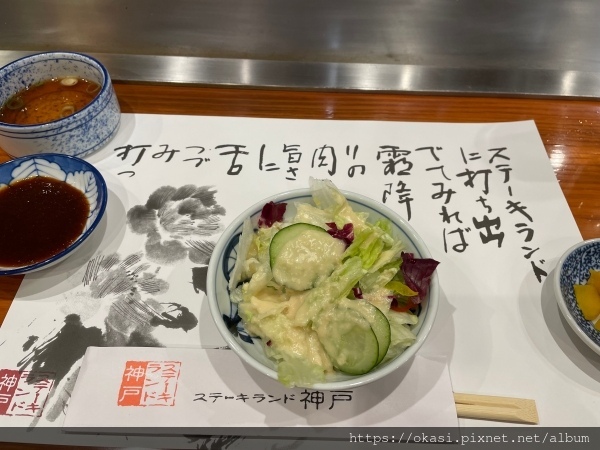 ステーキランド
に打ち出
でてみれば
霜降
りの
肉
旨さ
に
舌
つづ
み
打
つ
ステーキ
ランド
神戸
ステーキランド神戸
ステーキ
ランド
神戸
https://okasi.pixnet.net/album